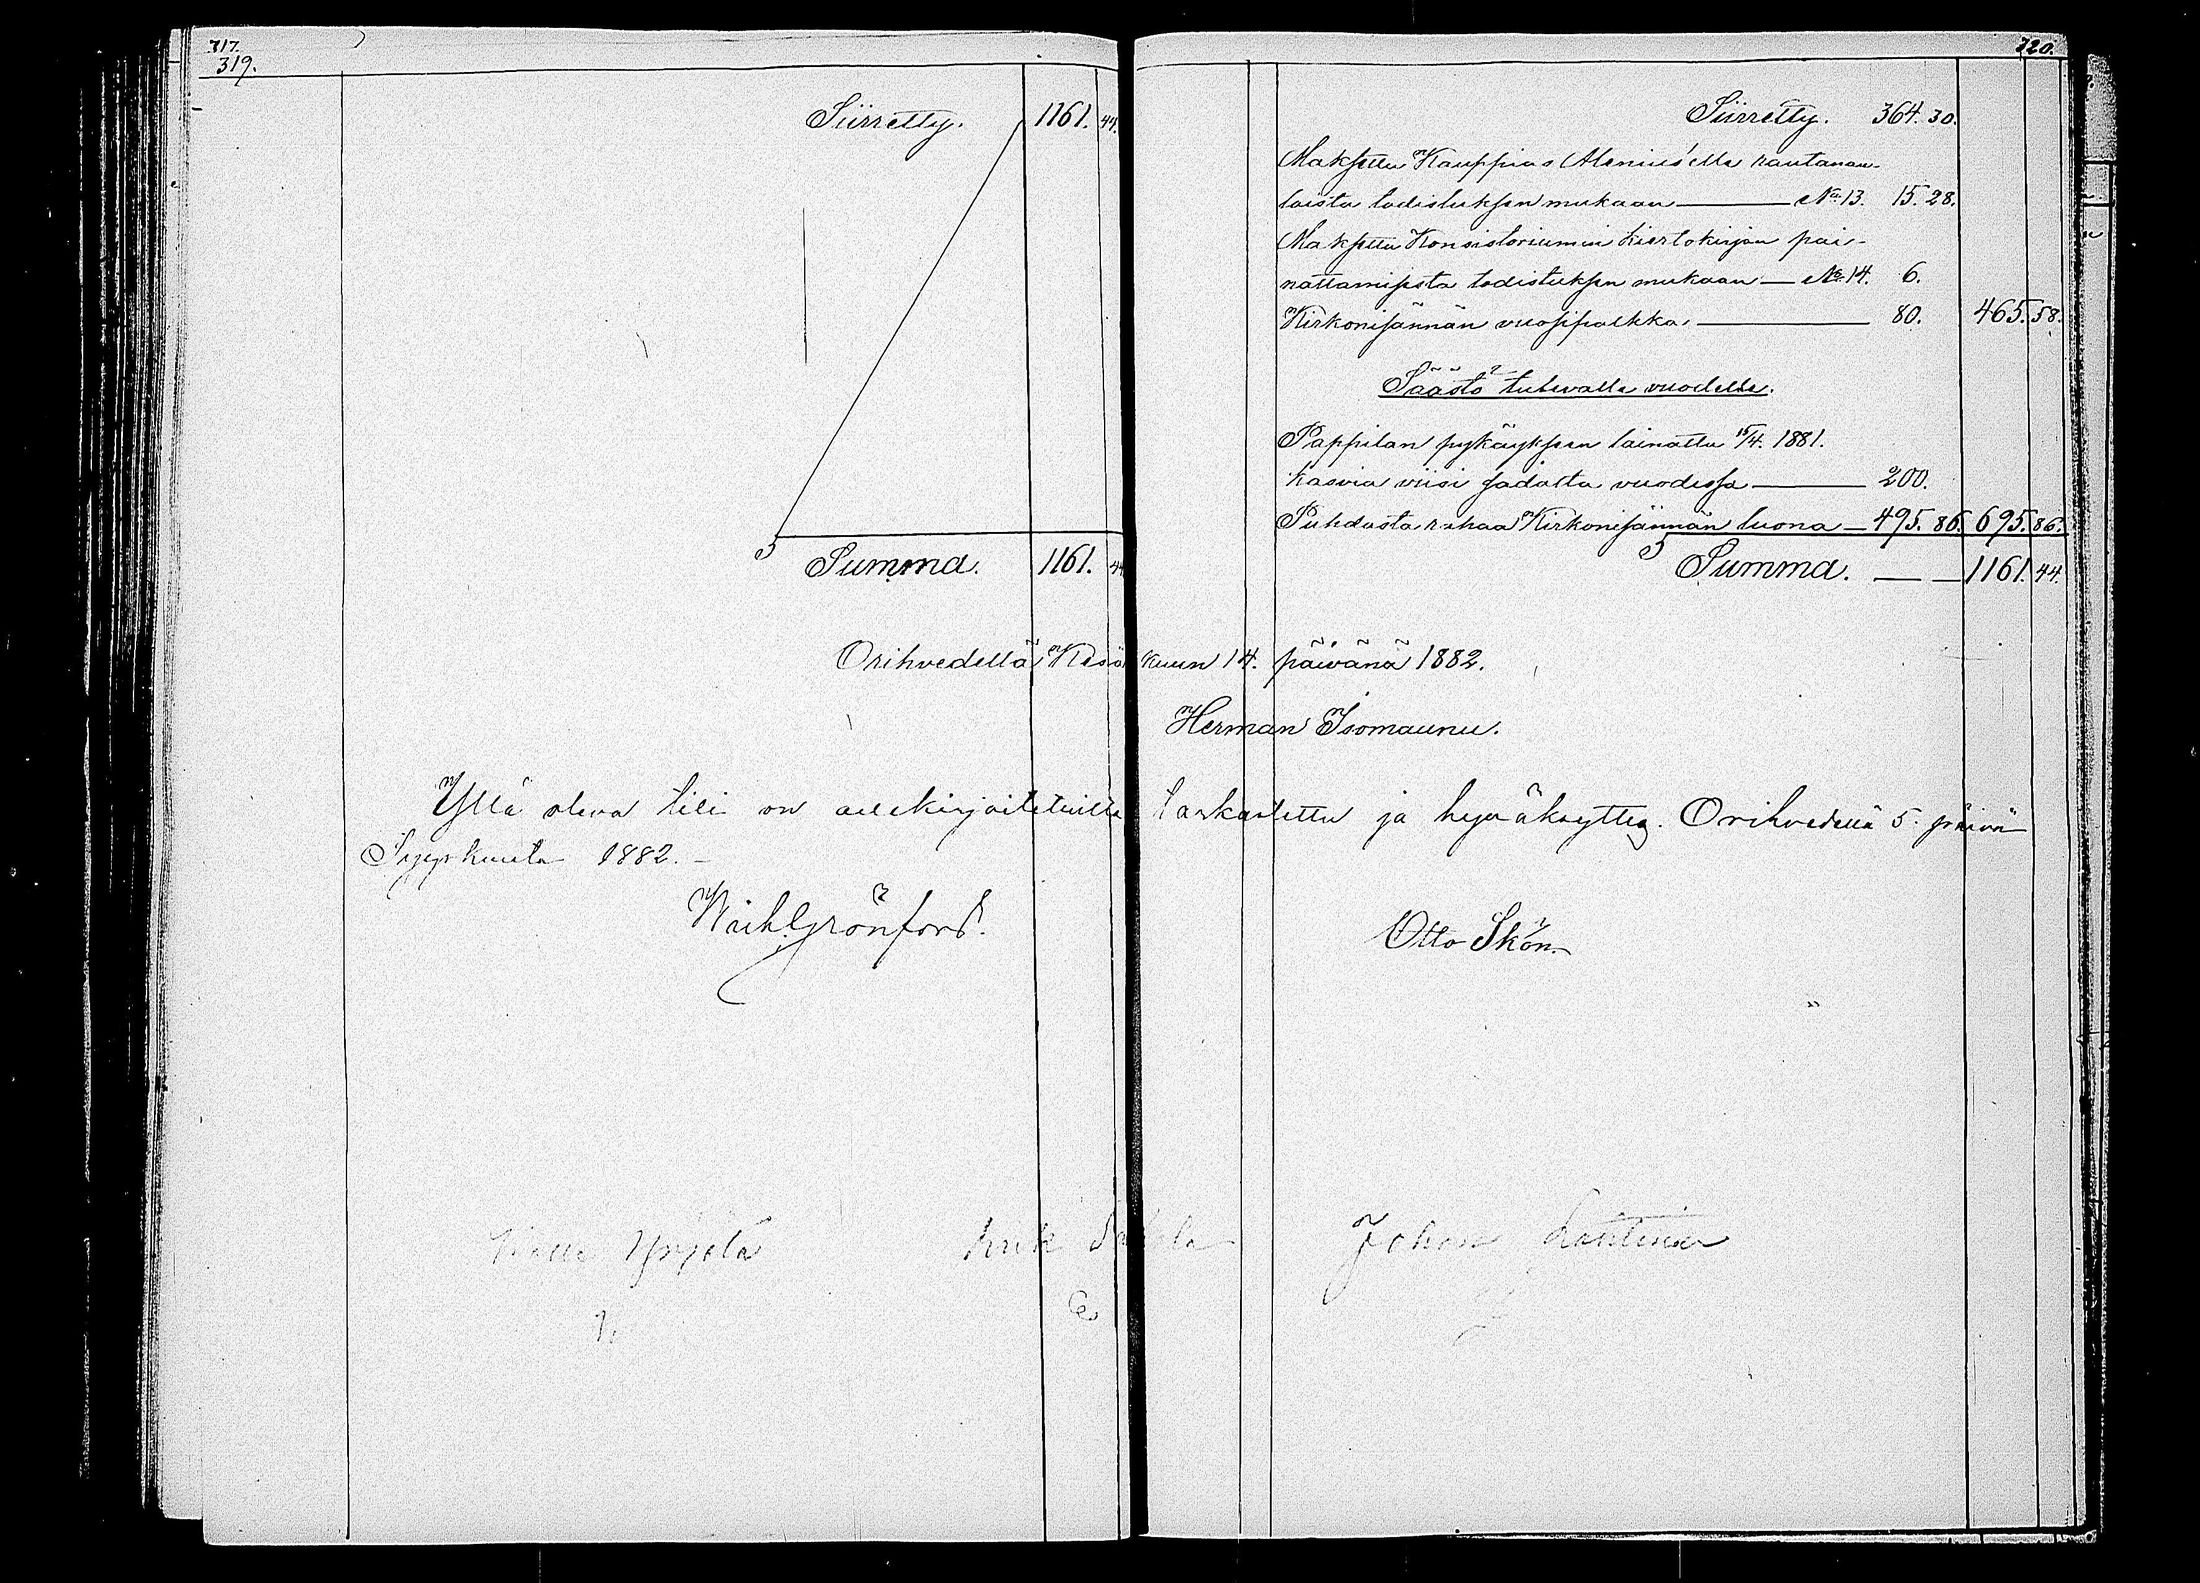 717.
319.
Siirretty. 1161. 44.
Summa. 1161. 44
720.
Siirretty. 364. 30.
Maksettu Kauppias Alenius'elle rautanau-
loista todistuksen mukaan — No 13. 15. 28.
Maksettu Konsistoriumin kiertokirjan pai-
nattamisesta todistuksen mukaan — No 14. 6.
Kirkonisännän vuosipalkka — 80. 465. 58.
Säästö tulevalle vuodelle.
Pappilan pykäyksen lainattu 15/4. 1881.
kasvia viisi sadalta vuodessa — 200.
Puhdasta rahaa Kirkonisännän luona — 495. 86. 695. 86.
Summa. — — 1161. 44.
Orihvedellä Kesäkuun 14. päivänä 1882.
Herman Isomaunu.
Yllä oleva tili on allekirjoitetuilta tarkastettu ja hyväksytty. Orihvedellä 5. päivä
Syyskuuta 1882. –
Grönfors.
Otto Skön.
Yrjölä Erik Johan